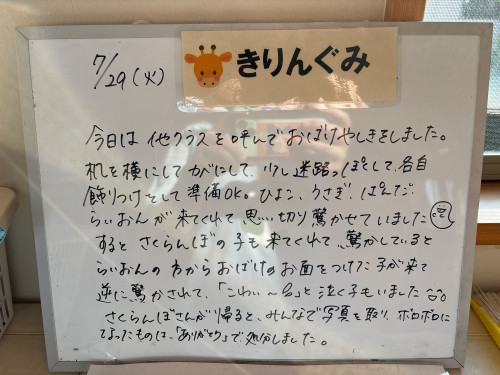 7/29(火)
きりんぐみ
今日は他クラスを呼んでおばけやしきをしました。
机を横にしてかべにして、少し迷路っぽくして、各自
飾りつけをして準備OK。ひよこ、うさぎ、ぱんだ、
らいおんが来てくれて思い切り驚かせていました
するとさくらんぼの子も来てくれて、驚かしていると
らいおんの方からおばけのお面をつけた子が来て
逆に驚かされて、「こわい〜」と泣く子もいました
さくらんぼさんが帰ると、みんなで写真を取り、ボロボロに
なったものは、「ありがとう」で処分しました。